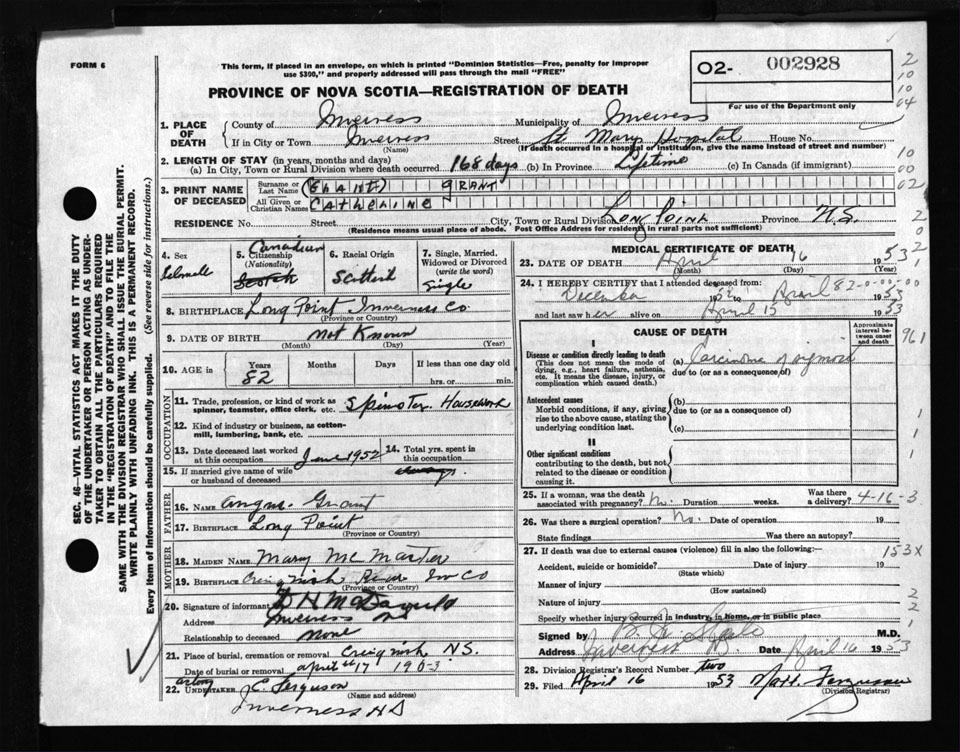 FORM 6
This form, if placed in an envelope, on which is printed "Dominion Statistics—Free, penalty for improper
use $300," and properly addressed will pass through the mail "FREE"
O2- 002928
For use of the Department only
2
10
10
04
PROVINCE OF NOVA SCOTIA—REGISTRATION OF DEATH
1. PLACE OF DEATH
County of Inverness Municipality of Inverness
If in City or Town Inverness Street St. Mary Hospital House No.
(Name) (If death occurred in a hospital or institution, give the name instead of street and number)
2. LENGTH OF STAY (in years, months and days)
(a) In City, Town or Rural Division where death occurred 168 days (b) In Province Lifetime (c) In Canada (if immigrant)
10
00
02
3. PRINT NAME OF DECEASED
Surname or Last Name GRANT
All Given or Christian Names CATHERINE
RESIDENCE No. Street City, Town or Rural Division LONG POINT Province N.S.
(Residence means usual place of abode. Post Office Address for residents in rural parts not sufficient)
4. Sex Female
5. Citizenship (Nationality) Canadian Scotch
6. Racial Origin Scottish
7. Single, Married, Widowed or Divorced (write the word) Single
8. BIRTHPLACE Long Point Inverness Co
(Province or Country)
9. DATE OF BIRTH Not Known
(Month) (Day) (Year)
10. AGE in Years 82 Months Days If less than one day old
hrs. or min.
OCCUPATION
11. Trade, profession, or kind of work as
spinner, teamster, office clerk, etc. Spinster. Housework
12. Kind of industry or business, as cotton-
mill, lumbering, bank, etc.
13. Date deceased last worked at this occupation June 1952
14. Total yrs. spent in this occupation
15. If married give name of wife
or husband of deceased
FATHER
16. NAME Angus Grant
17. BIRTHPLACE Long Point
(Province or Country)
MOTHER
18. MAIDEN NAME Mary McMaster
19. BIRTHPLACE Creignish Rear Inv Co
(Province or Country)
20. Signature of informant
Address Inverness NS
Relationship to deceased None
21. Place of burial, cremation or removal Creignish N.S.
Date of burial or removal April 17 19
acting
22. UNDERTAKER J.C. Ferguson
(Name and address)
Inverness NS
MEDICAL CERTIFICATE OF DEATH
23. DATE OF DEATH April 16 1953
(Month) (Day) (Year)
24. I HEREBY CERTIFY that I attended deceased from
December 1952 to April 1953
82-0-00-00
and last saw her alive on April 15 1953
CAUSE OF DEATH
Approximate interval between onset and death
961
I
Disease or condition directly leading to death
(This does not mean the mode of dying, e.g., heart failure, asthenia, etc. It means the disease, injury, or complication which caused death.)
(a) Carcinoma of sigmoid
due to (or as a consequence of)
Antecedent causes
Morbid conditions, if any, giving rise to the above cause, stating the underlying condition last.
(b)
due to (or as a consequence of)
(c)
II
Other significant conditions
contributing to the death, but not related to the disease or condition causing it.
25. If a woman, was the death associated with pregnancy? No. Duration weeks. Was there a delivery?
4-16-3
26. Was there a surgical operation? No. Date of operation 19
State findings Was there an autopsy?
27. If death was due to external causes (violence) fill in also the following:—
153X
Accident, suicide or homicide? Date of injury 19
(State which)
Manner of injury
(How sustained)
Nature of injury
Specify whether injury occurred in industry, in home, or in public place
Signed by M.D.
Address Inverness NS. Date April 16 1953
28. Division Registrar's Record Number two
29. Filed April 16 1953 Natt. Ferguson
(Division Registrar)
SEC. 46—VITAL STATISTICS ACT MAKES IT THE DUTY
OF THE UNDERTAKER OR PERSON ACTING AS UNDER-
TAKER TO OBTAIN ALL THE PARTICULARS REQUIRED
IN THE "REGISTRATION OF DEATH" AND TO FILE THE
SAME WITH THE DIVISION REGISTRAR WHO SHALL ISSUE THE BURIAL PERMIT.
WRITE PLAINLY WITH UNFADING INK. THIS IS A PERMANENT RECORD.
Every item of information should be carefully supplied. (See reverse side for instructions.)